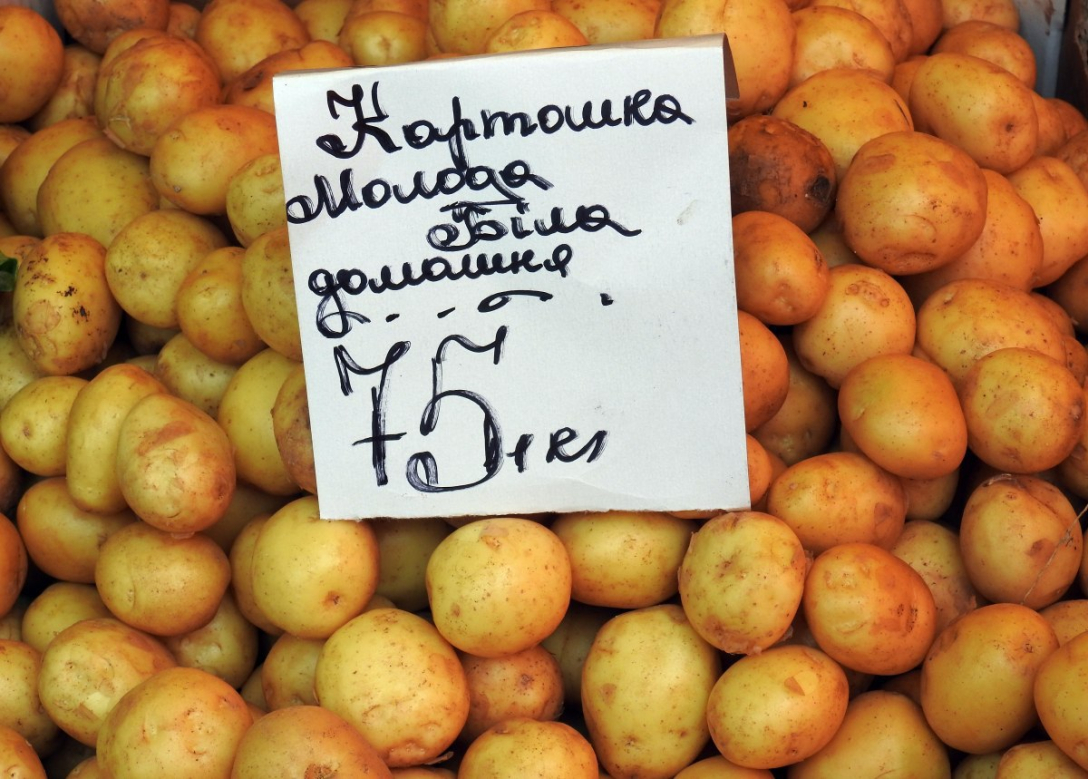 Картошка
Молода
Біла
домашня
75, кг